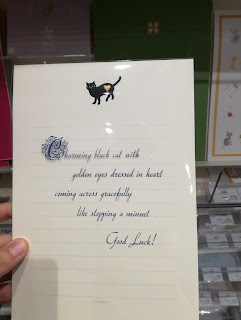 Charming black cat with
golden eyes dressed in heart
coming across gracefully
like stepping a minuet
Good Luck!